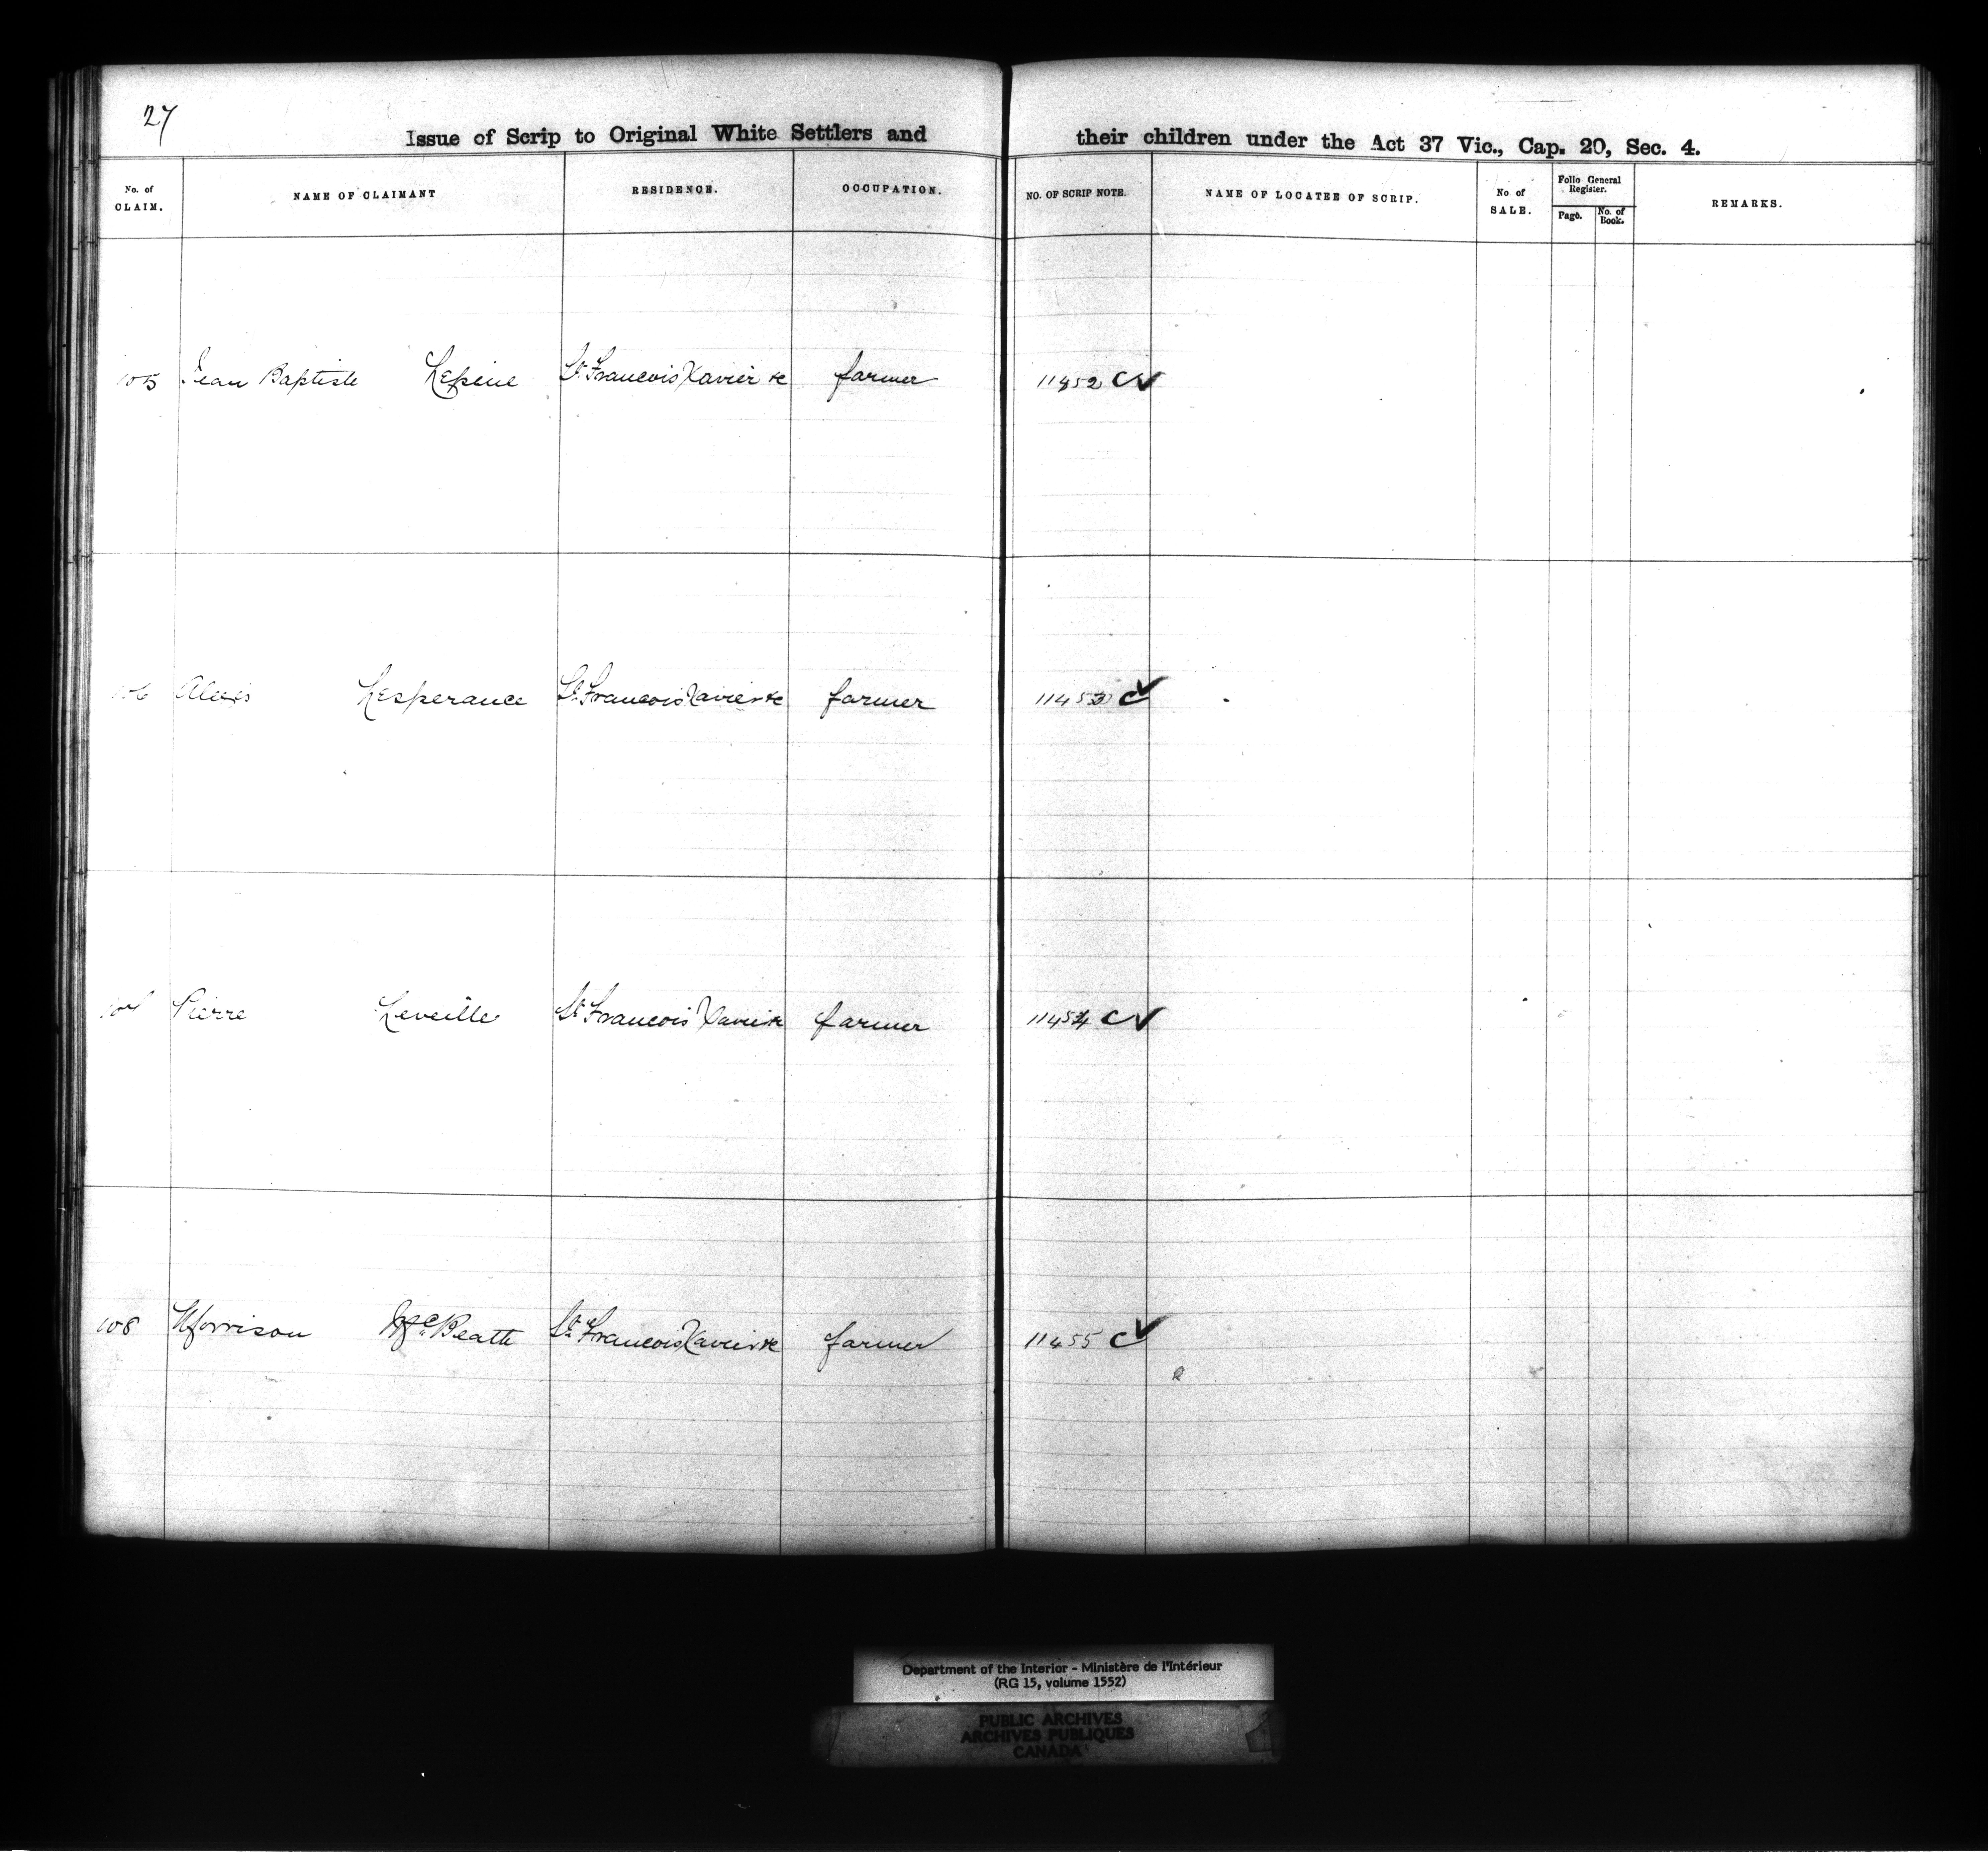 27
Issue of Scrip to Original White Settlers and their children under the Act 37 Vic., Cap. 20, Sec. 4.
No. of CLAIM. NAME OF CLAIMANT RESIDENCE. OCCUPATION. NO. OF SCRIP NOTE. NAME OF LOCATEE OF SCRIP. No. of SALE. Folio General Register. Page. No. of Book. REMARKS.
105 Jean Baptiste Lepine St. Francois Xavier farmer 11452
106 Alexis Lesperance St. Francois Xavier farmer 11453
107 Pierre Leveille St. Francois Xavier farmer 11454
108 Morrison McBeath St. Francois Xavier farmer 11455
Department of the Interior - Ministère de l'Intérieur
(RG 15, volume 1552)
PUBLIC ARCHIVES
ARCHIVES PUBLIQUES
CANADA